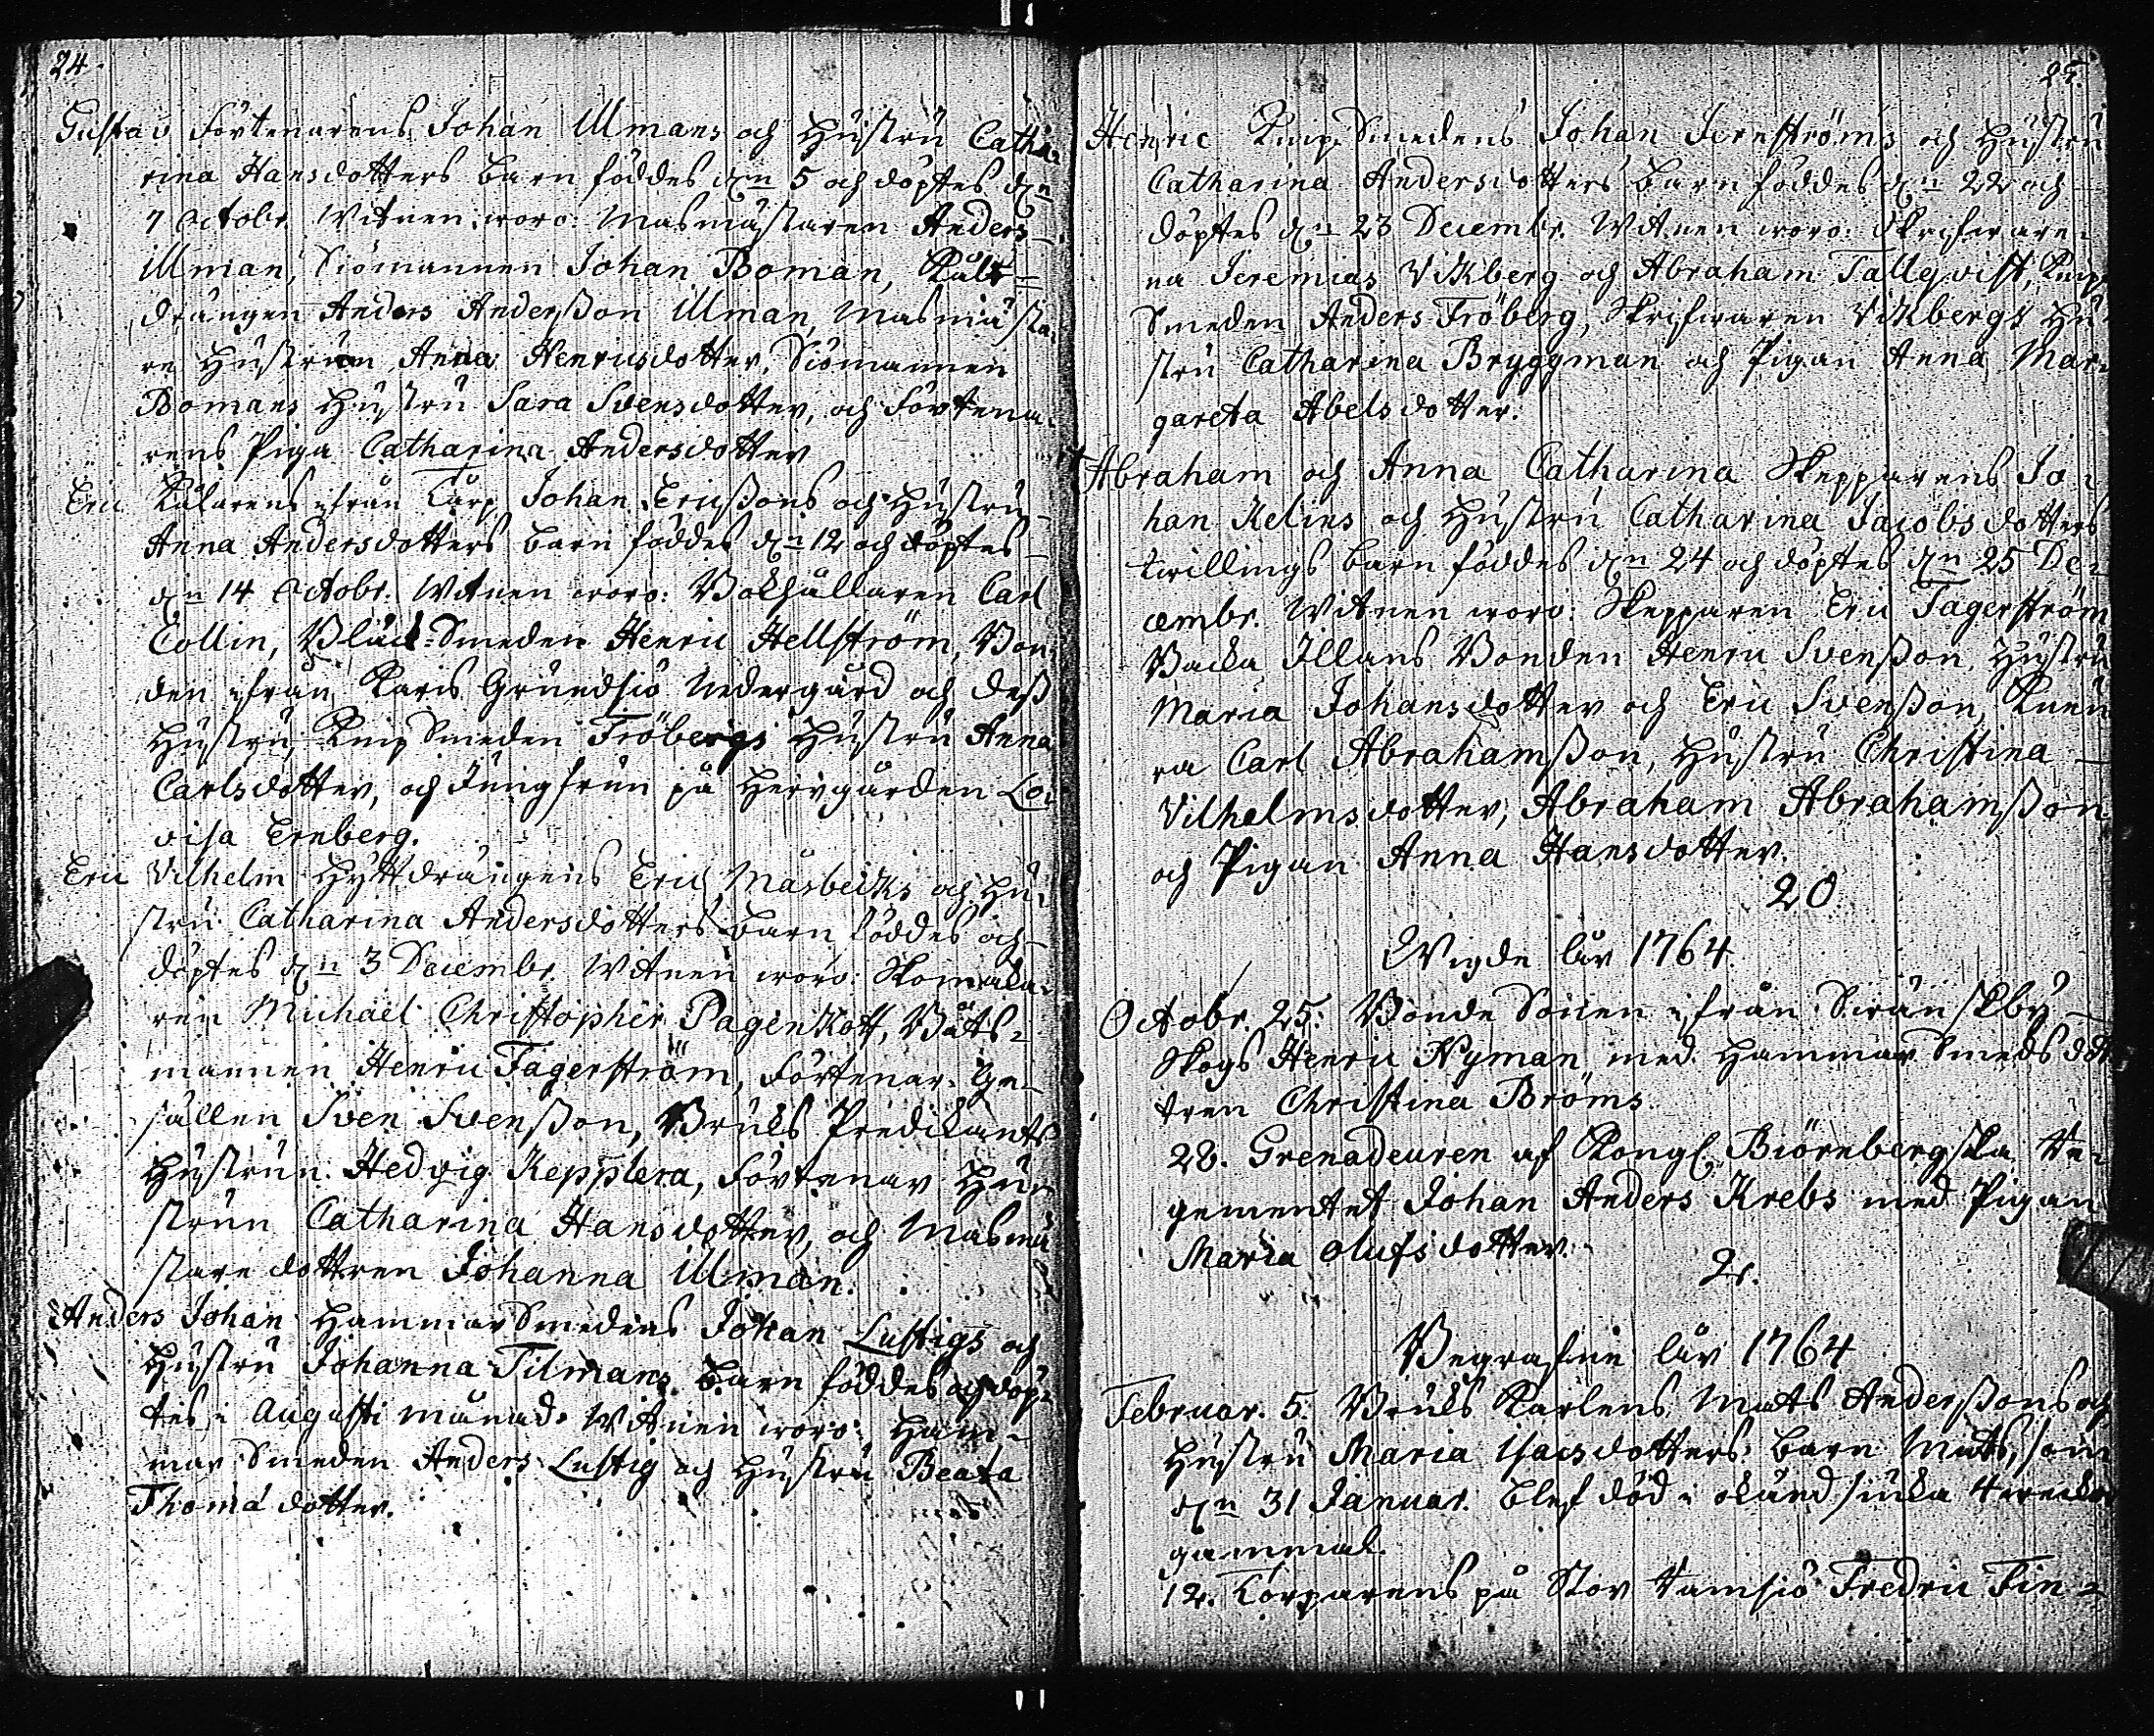 24.
Gustav Förtenarens Johan Ulmans och Hustru Catha-
rina Hansdotters barn föddes d:n 5 och döptes d:n
7 Octobr. Witnen woro: Masmästaren Anders
Ulman, Siömannen Johan Boman, Kåls-
drängen Anders Anderßon Ulman, Masmästa-
re Hustrun Anna Henricsdotter, Siömannen
Bomans Hustru Sara Svensdotter, och Förtena-
rens Piga Catharina Andersdotter
Eric Kålarens ifrån Torp Johan Ericßons och Hustru
Anna Andersdotters barn föddes d:n 12 och döptes
d:n 14 Octobr. Witnen woro: Bokhållaren Carl
Collin, Smeden Henric Hellström, Bon-
den ifrån Karis Grundsiö Nedergård och deß
Hustru, Knip Smeden Fröbergs Hustru Anna
Carlsdotter, och Jungfrun på Herrgården Lo-
visa Ernberg.
Eric Vilhelm Hyttdrängens Eric Måsbecks och Hu-
stru Catharina Andersdotters barn föddes och
döptes d:n 3 Decembr. Witnen woro: Skomaka-
ren Michaël Christopher Pagenkott, Båts-
mannen Henric Fagerström, Förtenar-Ge-
sällen Sven Svenßon, Bruks Predikants
Hustrun Hedvig Kepplera, Förtenar Hu-
strun Catharina Hansdotter, och Masmä-
stare dottren Johanna Ulman.
Anders Johan Hammar Smedens Johan Lustigs och
Hustru Johanna Tilmans barn föddes och döp-
tes i Augusti månad. Witnen woro: Ham-
mar Smeden Anders Lustig och Hustru Beata
Thomædotter.
25.
Henric Knip-Smedens Johan Jernströms och Hustru
Catharina Andersdotters barn föddes d:n 22 och
döptes d:n 23 Decembr. Witnen woro: Skrifware-
na Jeremias Vikberg och Abraham Tallqvist, Knip
Smeden Anders Fröberg, Skrifwaren Vikbergs Hu-
stru Catharina Bryggman och Pigan Anna Mar-
gareta Abelsdotter.
Abraham och Anna Catharina Skepparens Jo-
han Kelins och Hustru Catharina Jacobsdotters
twillings barn föddes d:n 24 och döptes d:n 25 De-
cembr. Witnen woro: Skepparen Eric Fagerström
Backa Illans Bonden Henric Svenßon, Hustru
Maria Johansdotter och Eric Svenßon,
Carl Abrahamßon, Hustru Christina
Vilhelmsdotter, Abraham Abrahamßon
och Pigan Anna Hansdotter.
20.
Wigde år 1764.
Octobr. 25. Bonde Sonen ifrån
Skogs Henric Nyman med Hammar Smeds dot-
tren Christina Bröms.
28. Grenadeuren af Kongl. Biörnbergska Re-
gementet Johan Anders Krebs med Pigan
Maria Olufsdotter.
2.
Begrafne år 1764
Februar. 5. Bruks Karlens Mats Anderßons och
Hustru Maria Isacsdotters barn Mats, som
d:n 31 Januar. blef död i okänd siuka 4 weckor
gammal.
12. Torparens på Stor Ramsiö Fredric Fin-